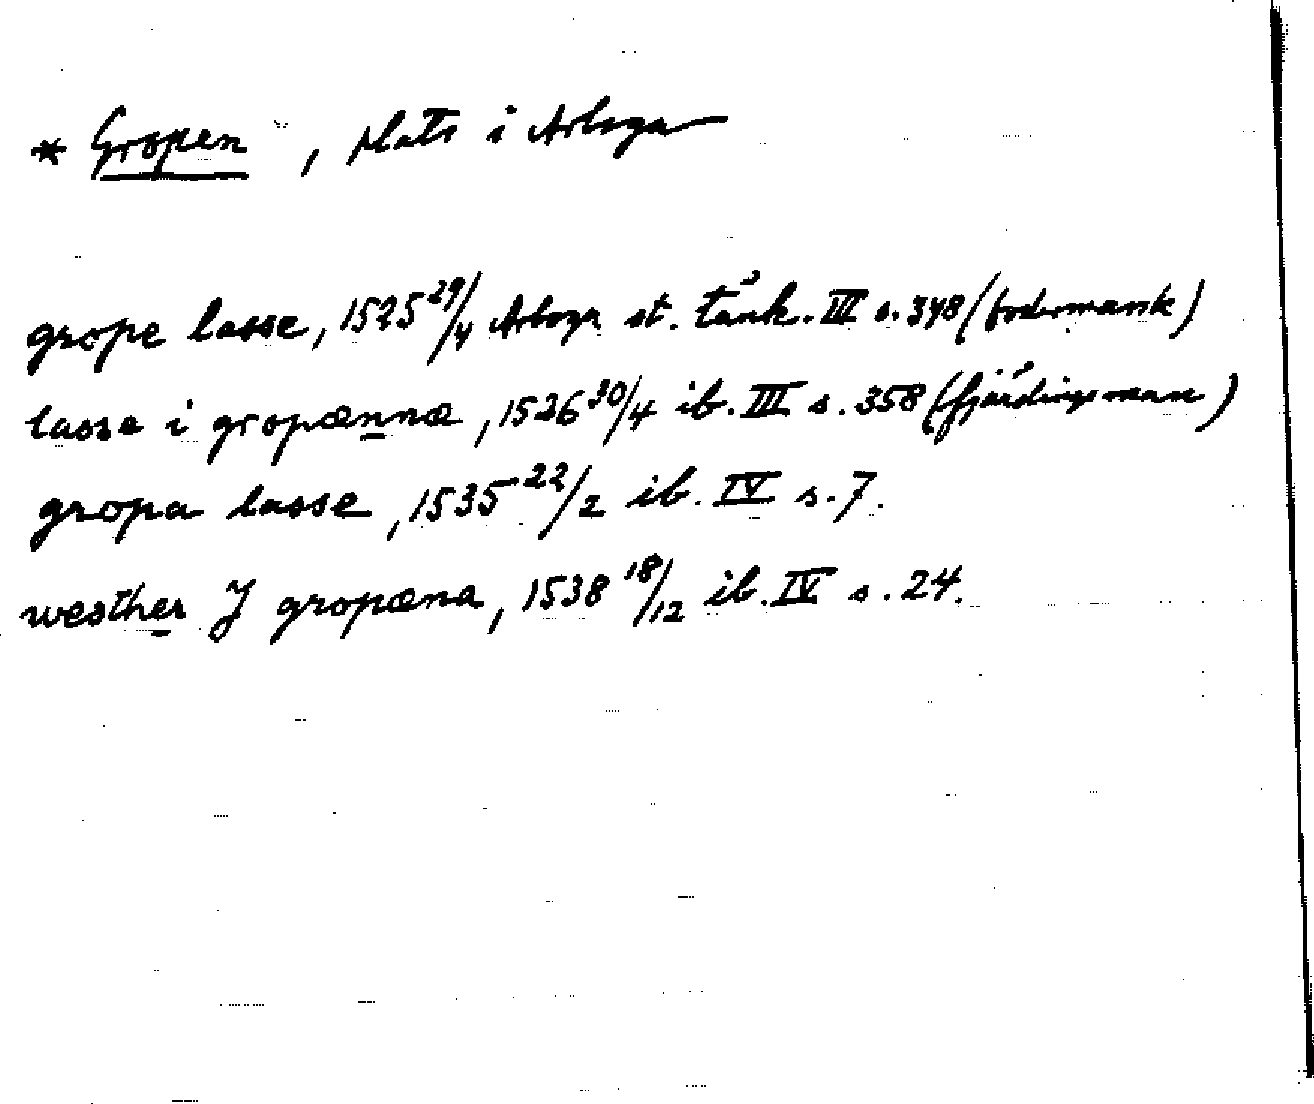 * Gropen, plats i Arboga
grope lasse, 1525 29/4 Arboga st. tänk. III s. 348 (fodermarsk)
lasse i gropænnæ, 1526 30/4 ib. III s. 358 (fjärdingsman)
gropa lasse, 1535 22/2 ib. IV s. 7.
westher J gropæna, 1538 18/12 ib. IV s. 24.